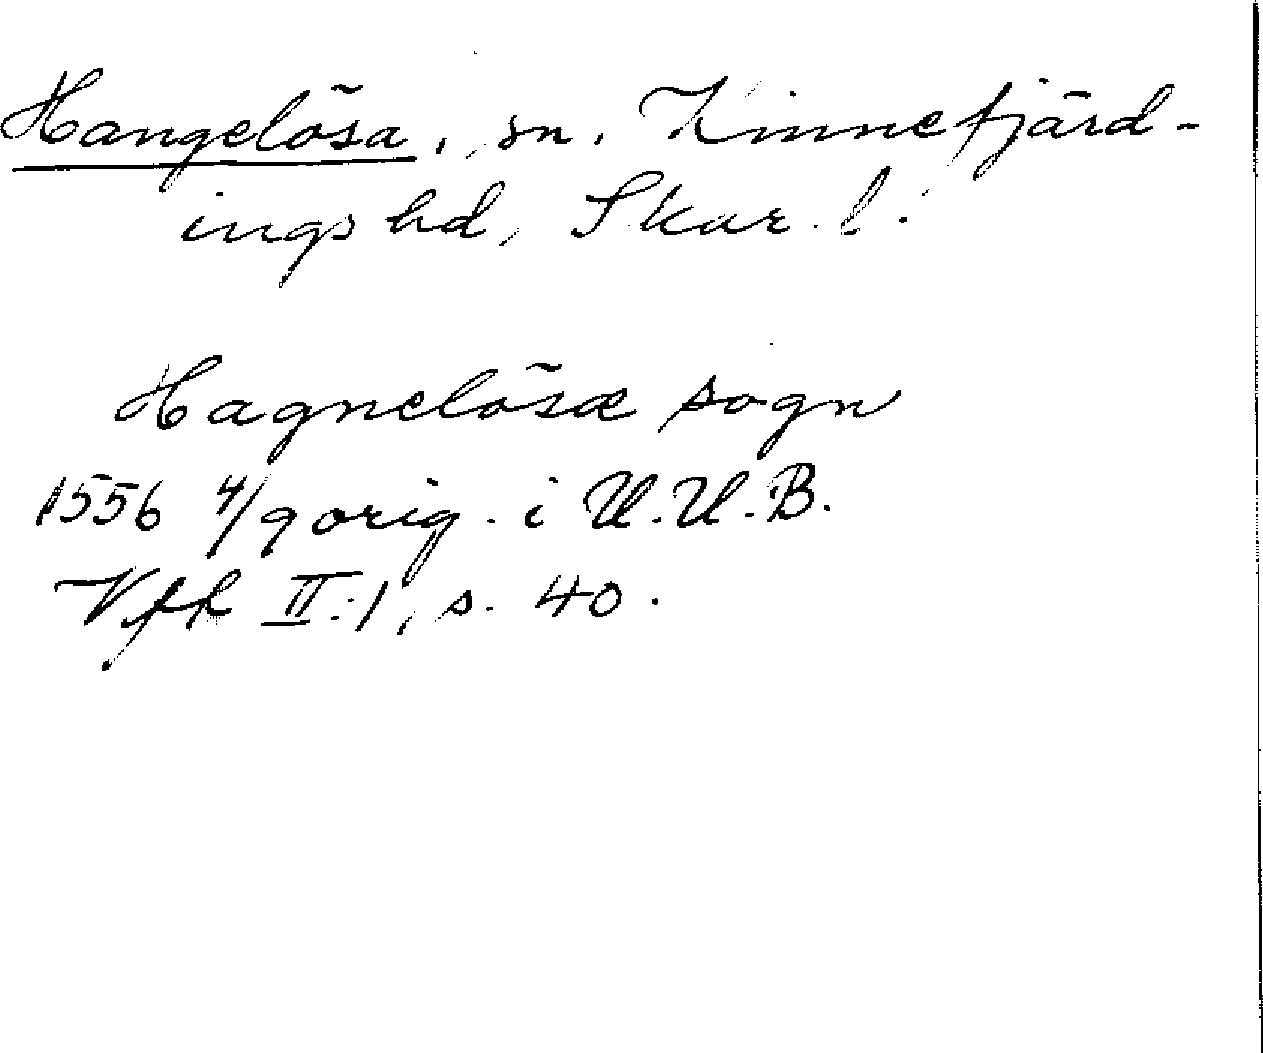 Hangelösa, sn. Kinnefjärd-
ings hd, Skar. l.
Hagnelösæ sogn
1556 4/9 orig. i U.U.B.
Vfh II:1, s. 40.